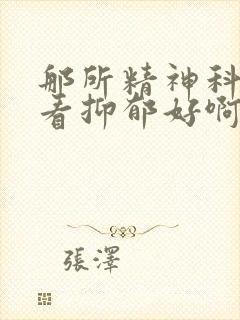 那所精神科
看抑郁好啊
張澤